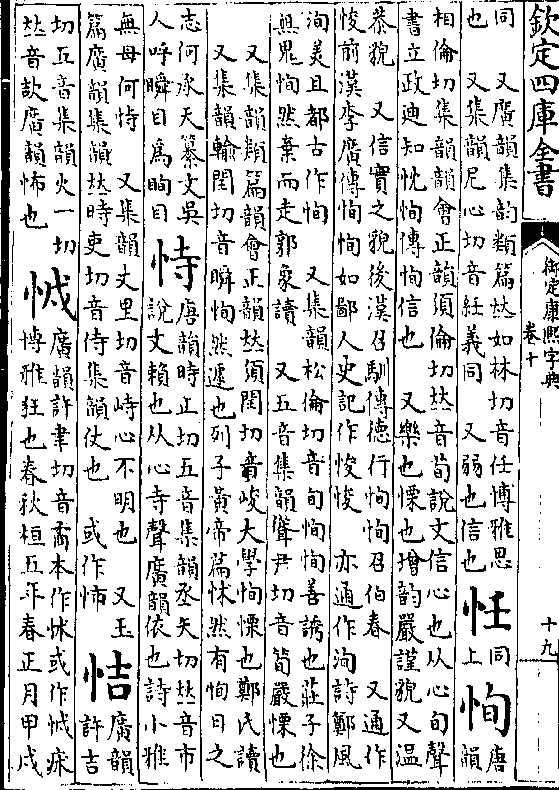 欽定四庫全書
御定康熙字典
卷十
十九
同　又廣韻集韵類篇𠀤如林切音任博雅思
也　又集韻尼心切音絍義同　又弱也信也
㤛
同
上
恂
唐
韻
相倫切集韻韻會正韻須倫切𠀤音荀說文信心也从心旬聲
書立政迪知忱恂傳恂信也　又樂也慄也增韵嚴謹貌又溫
恭貌　又信實之貌後漢召馴傳德行恂恂召伯春　又通作
悛前漢李廣傳恂恂如鄙人史記作悛悛　亦通作洵詩鄭風
洵美且都古作恂　又集韻松倫切音旬恂恂善誘也莊子徐
無鬼恂然棄而走郭象讀　又五音集韻聳尹切音筍嚴慄也
又集韻類篇韻會正韻𠀤須閏切音峻大學恂慄也鄭氏讀
又集韻輸閏切音瞬恂然遽也列子黃帝篇怵然有恂目之
志何承天纂文吳
人呼瞬目為眴目
恃
唐韻時止切五音集韻丞矢切𠀤音市
說文賴也从心寺聲廣韻依也詩小雅
無母何恃　又集韻丈里切音峙心不明也　又玉
篇廣韻集韻𠀤時吏切音侍集韻仗也　或作
恄
廣韻
許吉
切五音集韻火一切
𠀤音欯廣韻怖也
㤜
廣韻許聿切音矞本作怴或作㤜
博雅狂也春秋桓五年春正月甲戌